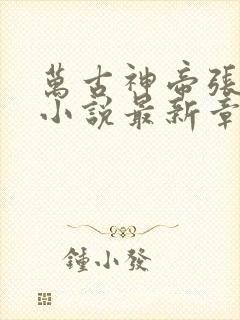 萬古神帝張
小說最新章
鍾小發